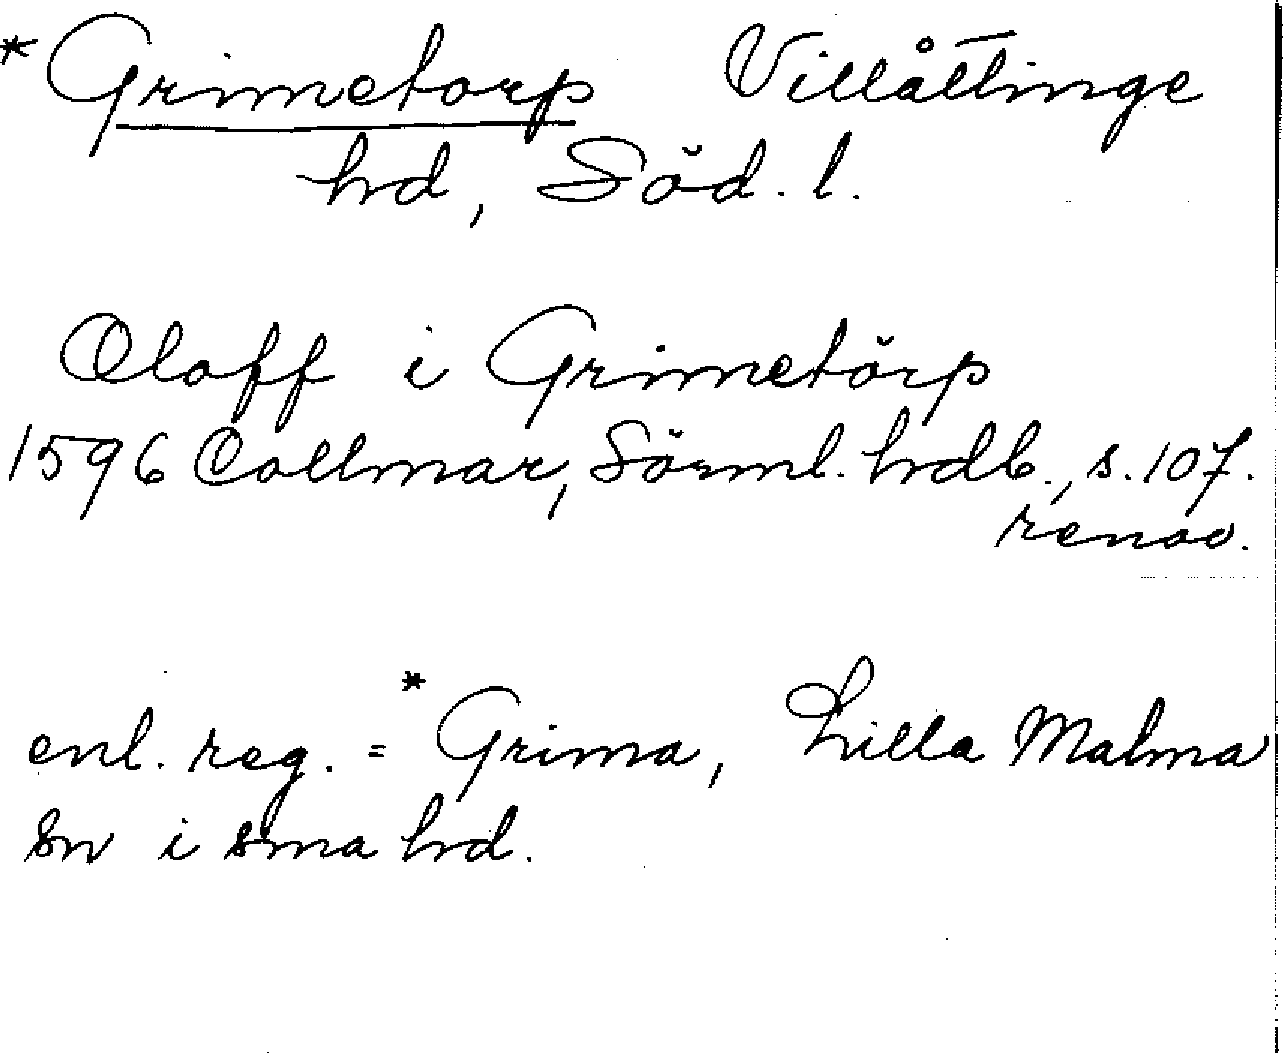 *Grimetorp Villåttinge
hd, Söd. l.
Oloff i Grimetörp
1596 Collmar, Sörml. hdb., s. 107.
renov.
enl. reg. = *Grima, Lilla Malma
sn i sma hd.